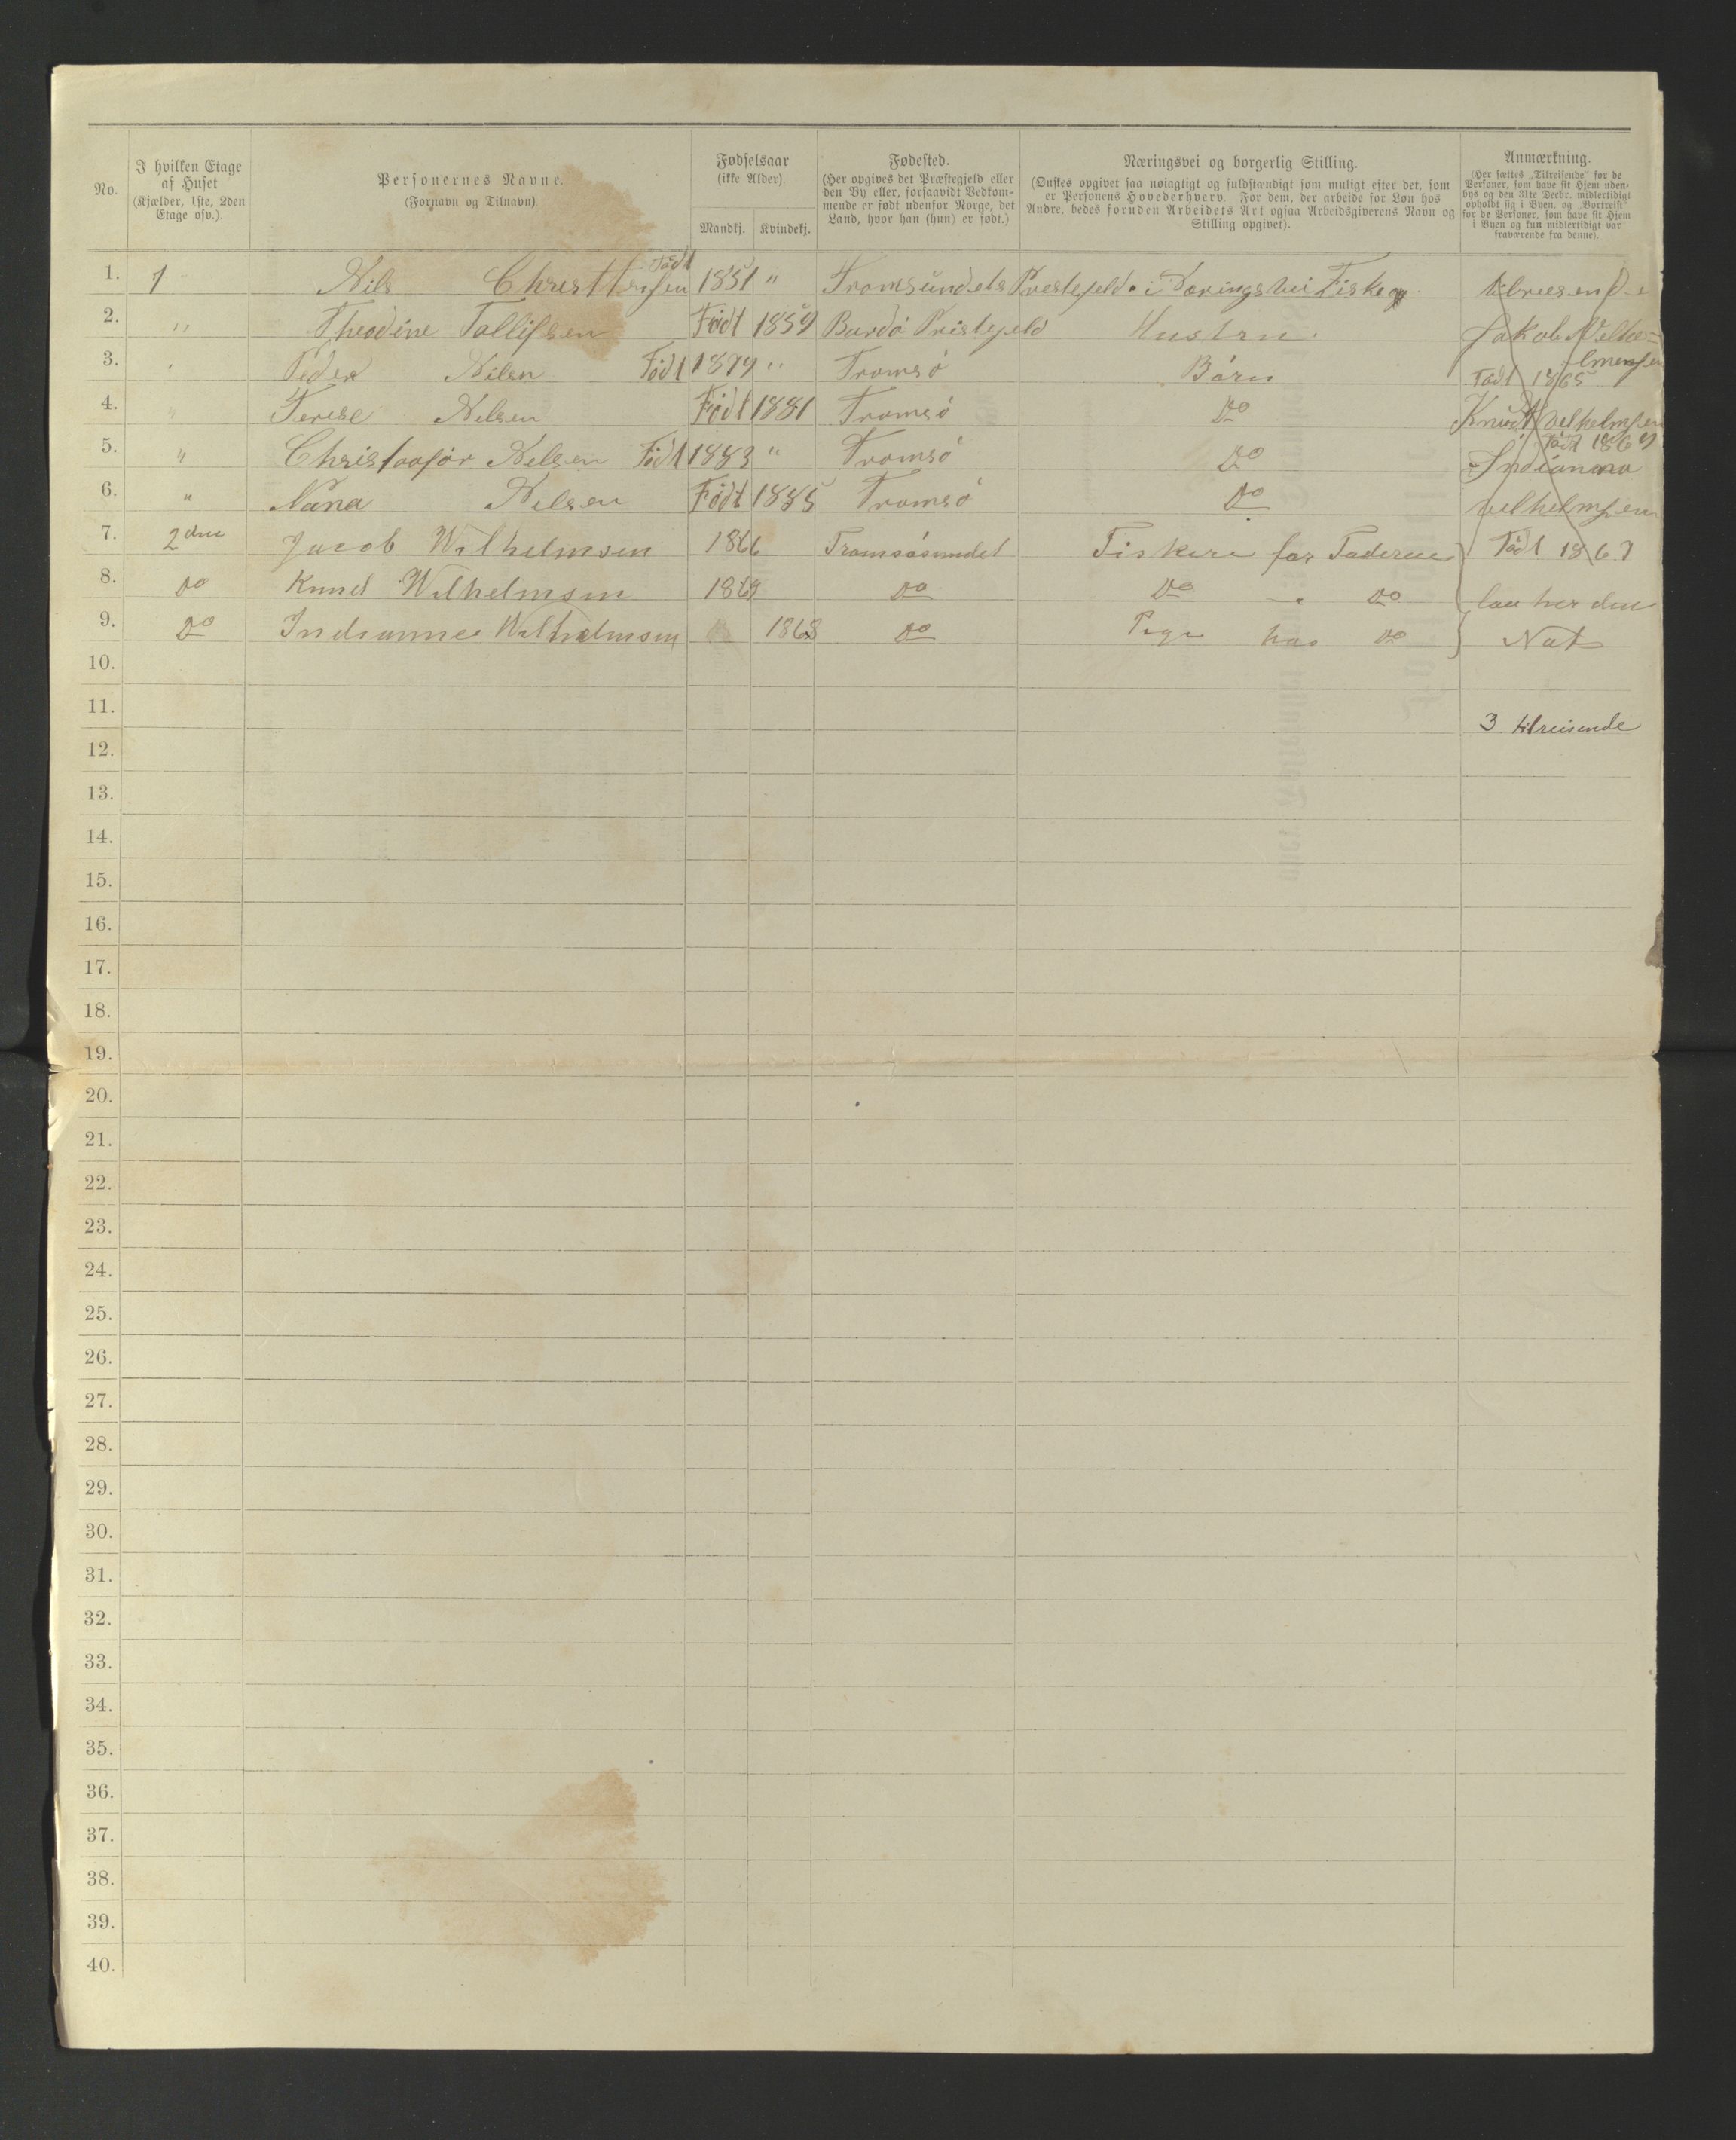 No.
I hvilken Etage
af Huset
(Kjælder, 1ste, 2den
Etage osv.).
Personernes Navne.
(Fornavn og Tilnavn)
Fødselsaar
(ikke Alder).
Mandkj. Kvindekj.
Fødested.
(Her opgives det Præstegjeld eller
den By eller, forsaavidt Vedkom-
mende er født udenfor Norge, det
Land, hvor han (hun) er født.)
Næringsvei og borgerlig Stilling.
(Ønskes opgivet saa nøiagtigt og fuldstændigt som muligt efter det, som
er Personens Hovederhverv. For dem, der arbeide for Løn hos
Andre, bedes foruden Arbeidets Art ogsaa Arbeidsgiverens Navn og
Stilling opgivet).
Anmærkning.
(Her sættes „Tilreisende“ for de
Personer, som have sit Hjem uden-
bys og den 31te Decbr. midlertidigt
opholdt sig i Byen, og „Bortreist“
for de Personer, som have sit Hjem
i Byen og kun midlertidigt var
fraværende fra denne).
1. 1 Nils Født 1851 " Tromsundets Prestegeld i Næringsvei Fisker
2. " Theodine Tollifsen Født 1859 Bardö Pristegeld Hustru. Jakob Velhe-
lmensen
3. Peder Nilsen Født 1879 " Tromsö Börn Födt 1865
4. " Terese Nelsen Født 1881 Tromsö Do Knudt velhelmsen
Födt 1869
5. " Christoaför Nelsen Födt 1883 " Tromsö Do Indianna
6. " Nana Nelsen Födt 1885 Tromsö Do velhelmsen
7. 2den Jacob Wilhelmsen 1866 Tromsösundet Fisker for Faderen Födt 1867
8. Do Knud Wilhelmsen 1869 Do Do " Do laa her den
9. Do Indianna Wilhelmsen 1868 Do Pige hos Do Nat
10.
11. 3 tilreisende
12.
13.
14.
15.
16.
17.
18.
19.
20.
21.
22.
23.
24.
25.
26.
27.
28.
29.
30.
31.
32.
33.
34.
35.
36.
37.
38.
39.
40.